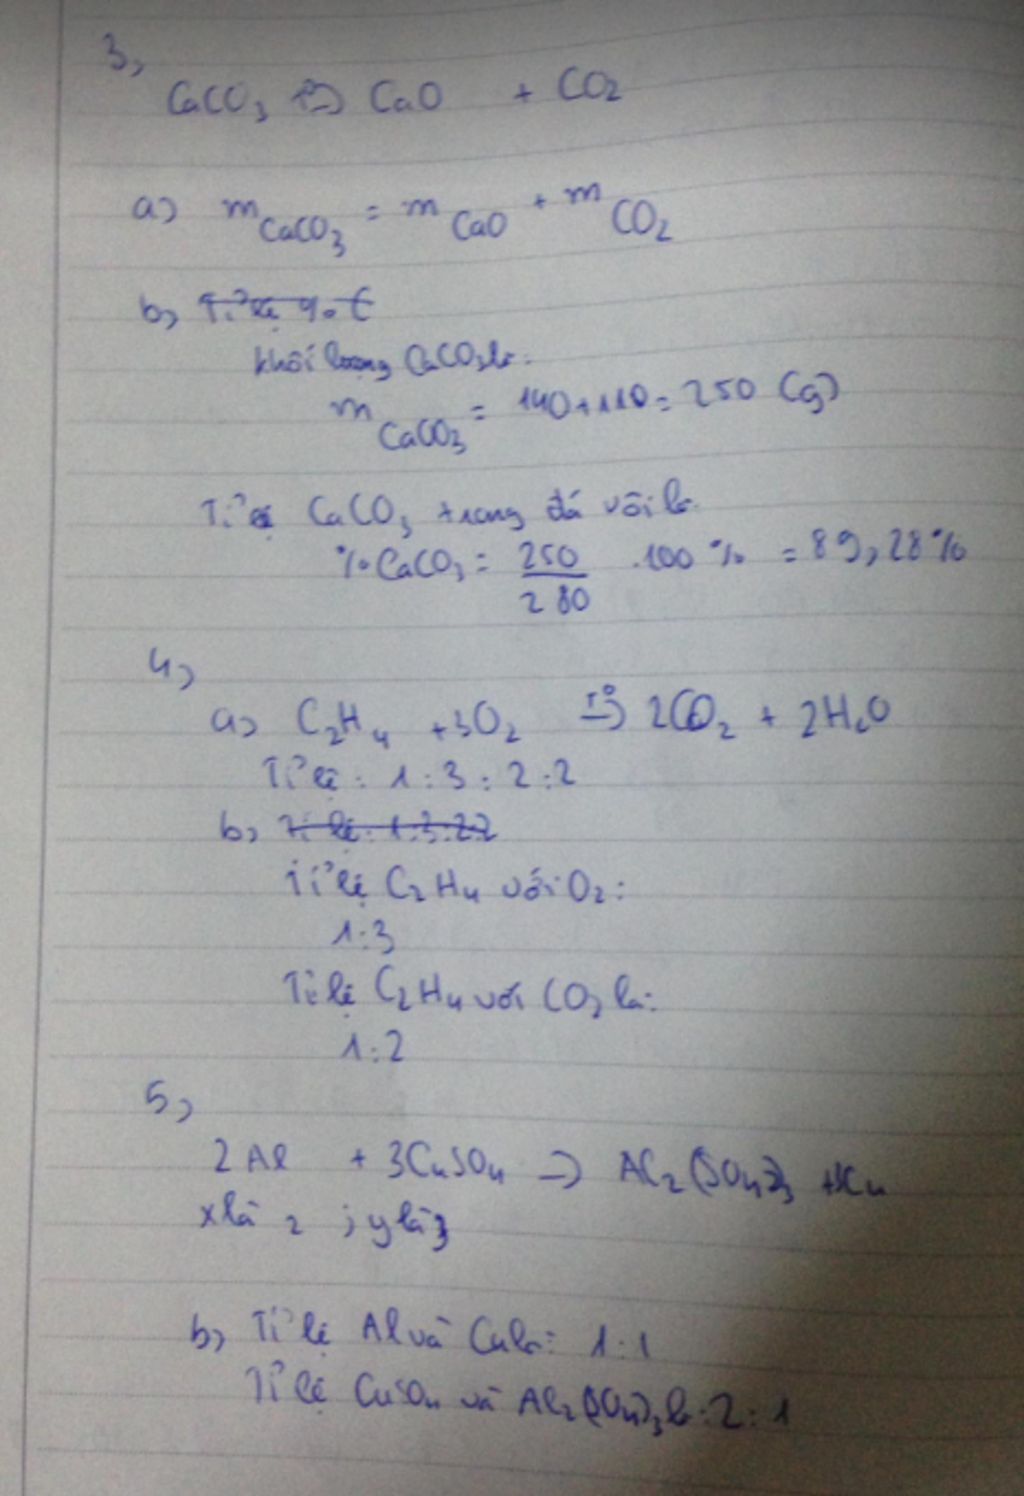 3,
CaCO3 t°→ CaO + CO2
a) mCaCO3 = mCaO + mCO2
b, Tỉ lệ % C
khối lượng CaCO3 là:
mCaCO3 = 140+110 = 250 (g)
Tỉ lệ CaCO3 trong đá vôi là
%CaCO3 = 250/280 . 100% = 89,28%
4,
a) C2H4 + 3O2 t°→ 2CO2 + 2H2O
Tỉ lệ : 1 : 3 : 2 : 2
b, Tỉ lệ: 1:3:2:2
Tỉ lệ C2H4 với O2:
1:3
Tỉ lệ C2H4 với CO2 là:
1:2
5,
2Al + 3CuSO4 → Al2(SO4)3 + 3Cu
x là 2 ; y là 3
b, Tỉ lệ Al và Cu là: 1:1
Tỉ lệ CuSO4 và Al2(SO4)3 là: 2:1